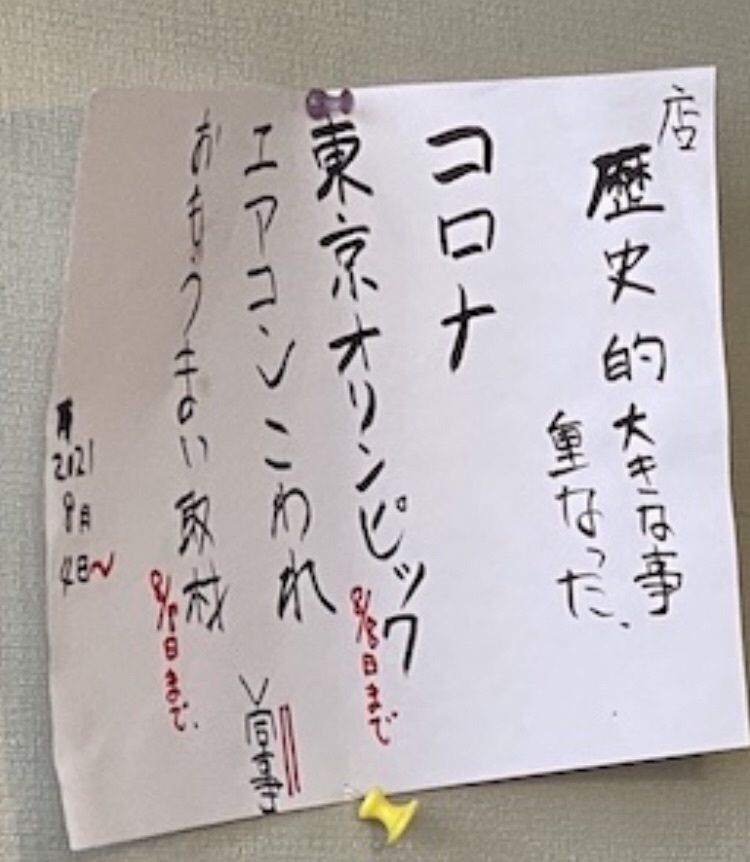 店
歴史的大きな事
重なった、
コロナ
東京オリンピック
8/8日まで
エアコンこわれ
同事
おもうまい取材
8/8日まで.
2021
8月
4日〜